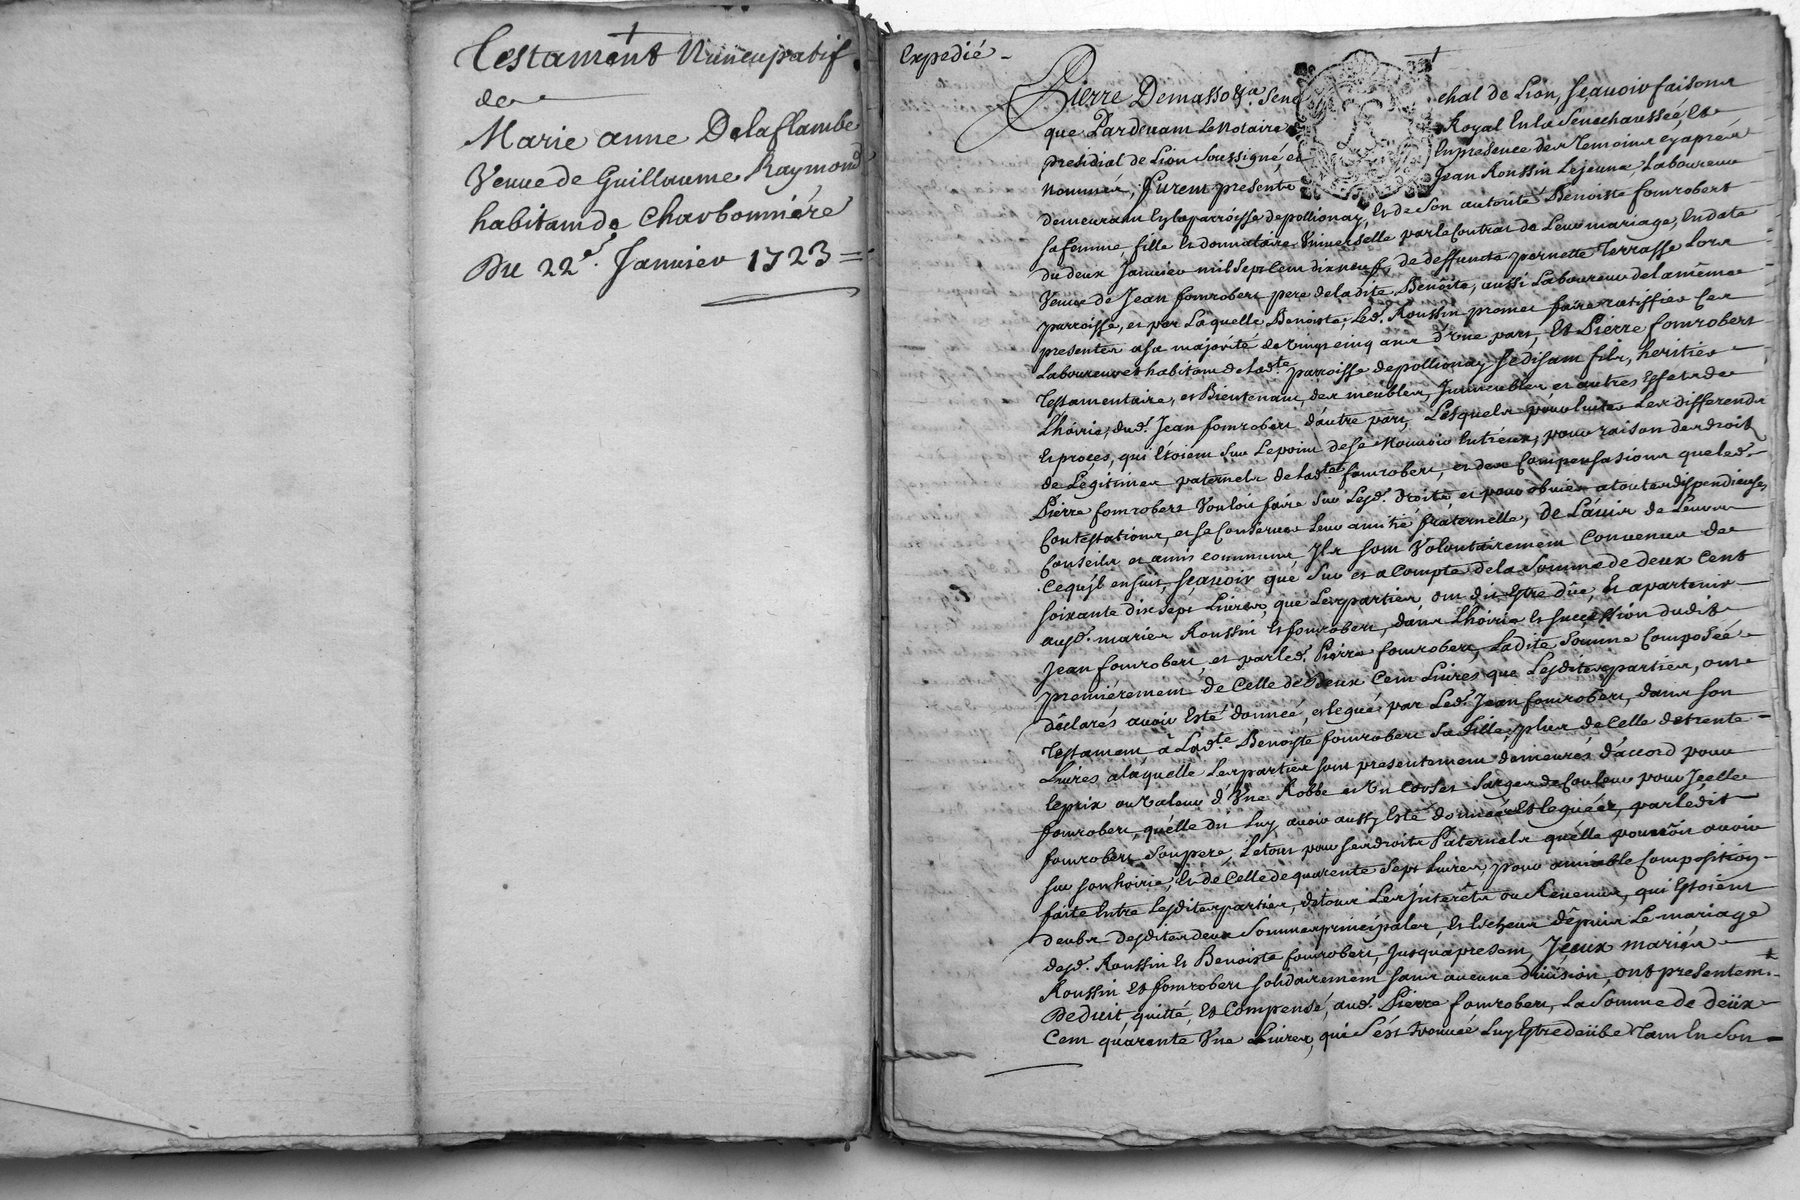 Testament Nuncupatif
de
Marie anne Delaflambe
Veuve de Guillaume Raymond
habitan de Charbonniére
Du 22e. Janvier 1723 =
Expedié -
Pierre Demasso &a. Sene chal de Lion, scavoir faisons
que Pardevant Le Notaire Royal En la Senechaussée, Et
presidial de Lion Soussigné, et En presence des Temoins cy apres
nommés, furent presents Jean Roussin Lejeune, Laboureur
demeurant En la parroisse de pollionay, Et de Son autorité Benoiste fomrobert
sa femme, fille Et donnataire Universelle par le Contrat de Leur mariage, En date
du deux Janvier mil Sept Cent dix neuf, de deffuncte pernette Terrasse Lors
Veuve de Jean fomrobert pere de ladite Benoite, aussi Laboureur de la méme
parroisse, et par Laquelle Benoiste, Led. Roussin promet faire ratiffier Ces
presentes a sa majorité de vingt cinq ans d'une part, Et Pierre fomrobert
Laboureur et habitant de Lad.te parroisse de pollionay se disant fils, heritier
Testamentaire, et Bientenant, des meubles, Immeubles et autres Effets de
L'hoirie, dud. Jean fomrobert d'autre part, Lesquels pour Eviter Les differends
Et procés, qui Etoient Sur Le point de se Mouvoir Entr'eux, pour raison des droits
de Legitimes paternels de Lad.te fomrobert, et des Compensations que led.
Pierre fomrobert Vouloit faire Sur Lesd. droits et pour obvier a toutes dispendieuses
Contestations, et se Conserver Leur amitié fraternelle, de L'avis de Leurs
Conseils et amis communs Ils sont Volontairement Convenus de
Ce qu'il en suit, scavoir que Sur et a Compte de la Somme de deux Cent
soixante dix sept Livres, que Les parties, ont dit Estre düe, Et apartenir
ausd. mariés Roussin Et fomrobert, dans L'hoirie Et succession dudit
Jean fomrobert, et par led. Pierre fomrobert, Ladite Somme Composée
premiérement de Celle de deux Cent Livres que Lesdites parties, ont
déclarés avoir Esté donnée, et leguée par Led. Jean fomrobert, dans son
Testament à Lad.te Benoiste fomrobert sa fille, plus de Celle de trente
Livres a laquelle Les parties sont presentement demeurés d'accord pour
le prix ou valeur d'Une Robbe et Un Corset Sarge de Couleur pour Jcelle
fomrobert, qu'elle dit Luy avoir aussy Esté donnée Et leguées, par lédit
fomrobert Son pere, Le tout pour ses droits Paternels qu'elle pourroit avoir
sur son hoirie, Et de Celle de quarente Sept Livres, pour amiable Composition
faite Entre Lesdites parties, de tous Les Jnterêts ou Revenus, qui Estoient
deubs desdites deux Sommes principales, Et Echeus dépuis Le mariage
desd. Roussin Et Benoiste fomrobert, Jusqu'a present, Jceux mariés
Roussin Et fomrobert solidairement sans aucune division, ont presentemt.
Deduit, quitté, Et Compensé, aud. Pierre fomrobert, La Somme de deüx
Cent quárente Une Livres, qui S'est trouvée Luy Estre deübe Tant En Son